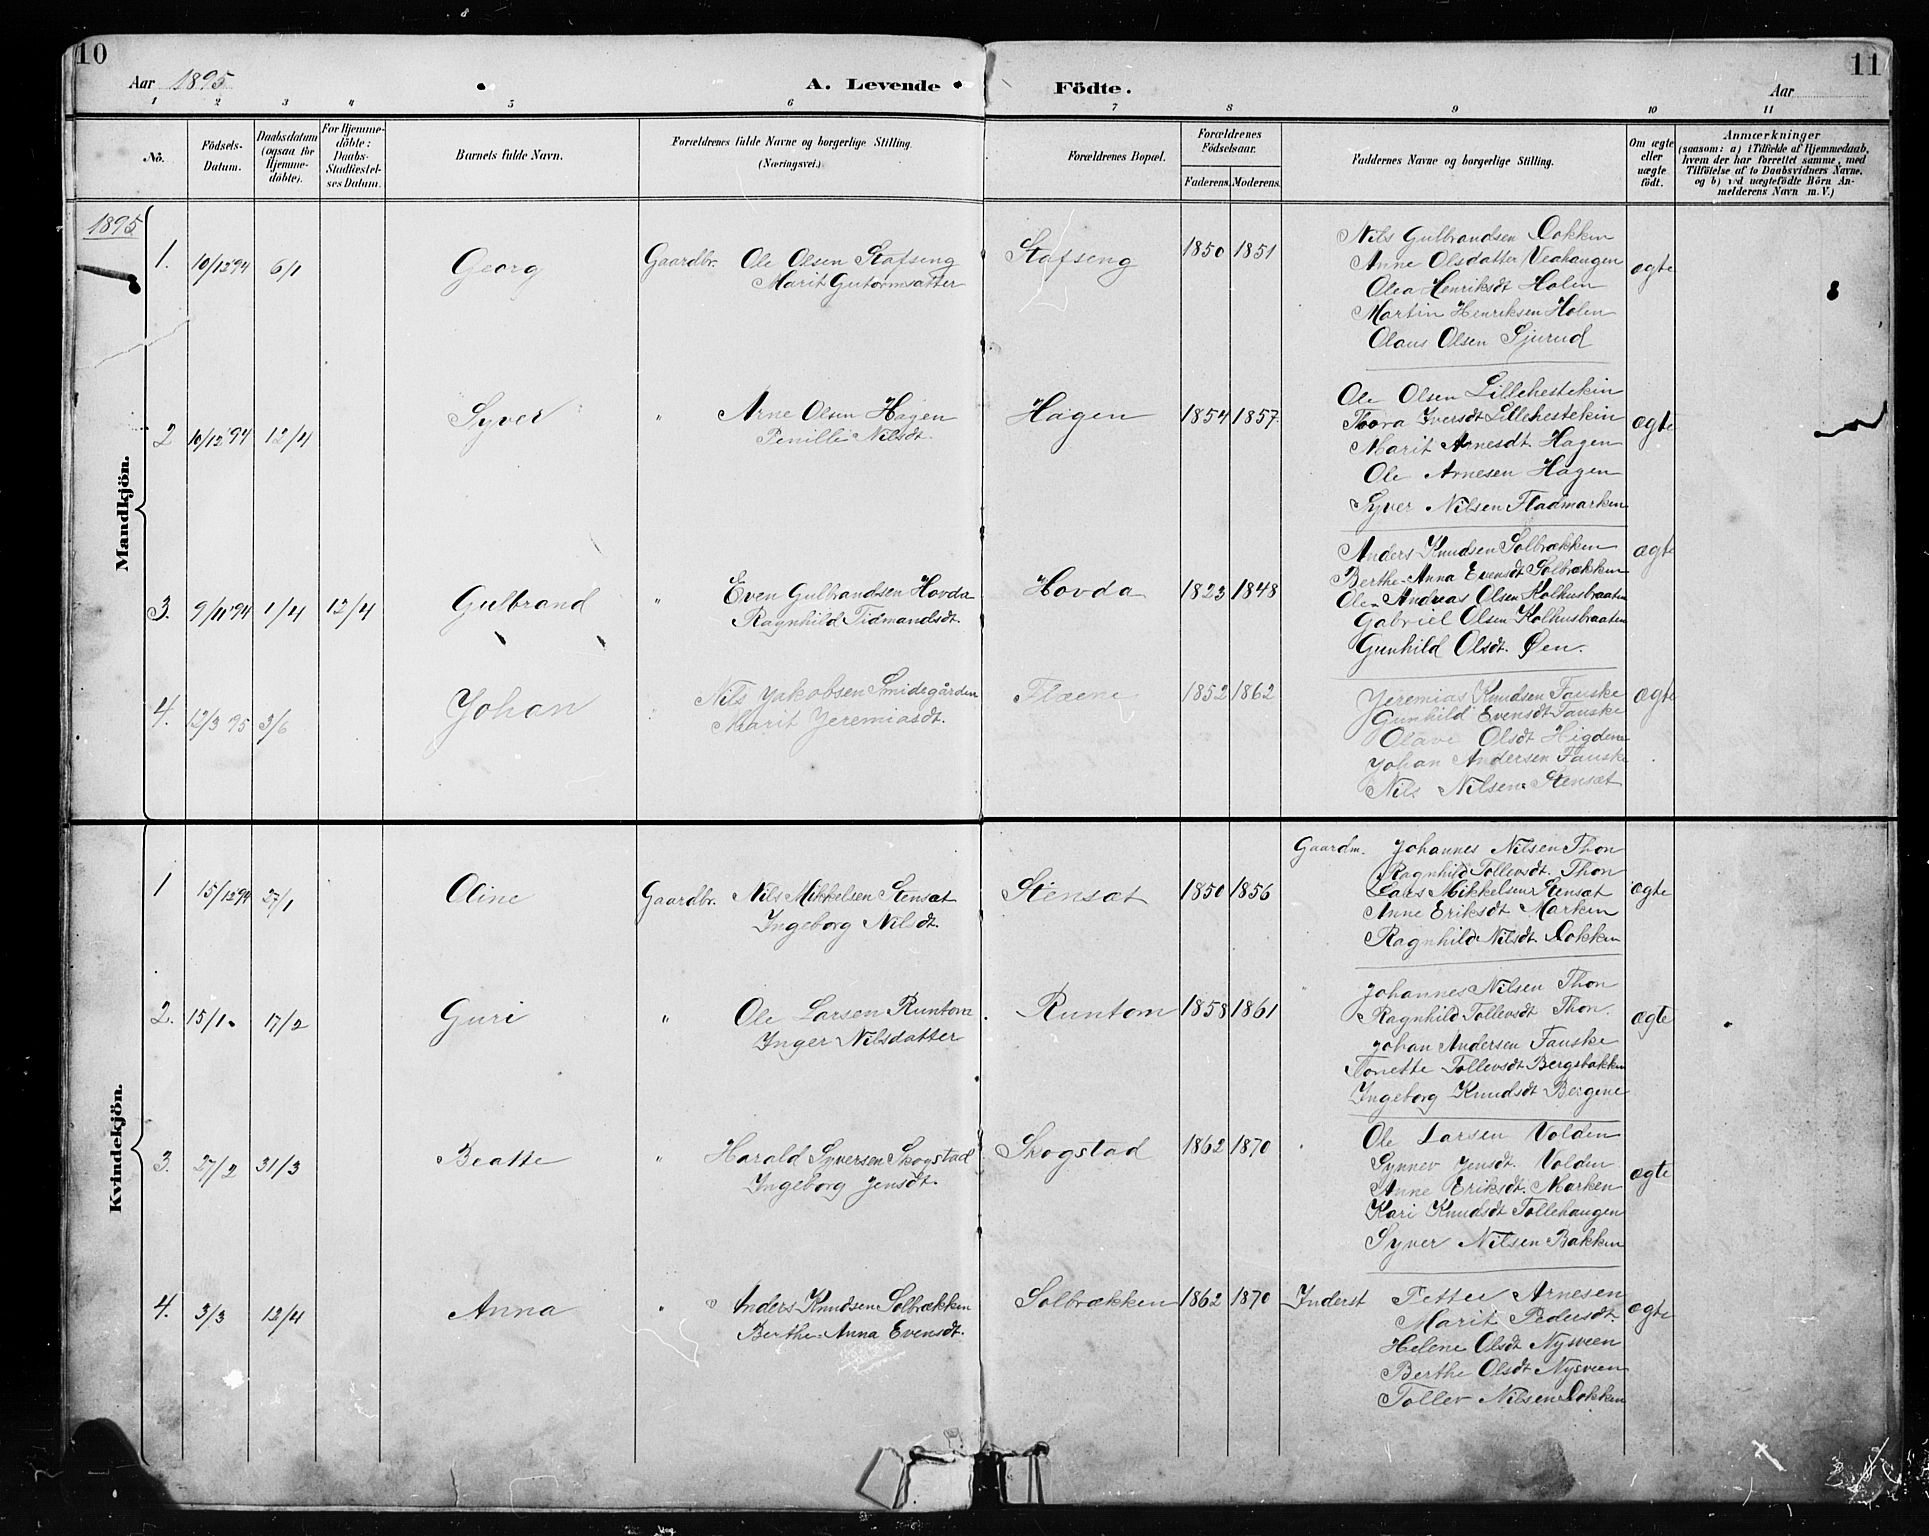 10
Aar 1895
A. Levende
Födte.
Aar
11
1 2 3 4 5 6 7 8 9 10 11
No.
Födsels-Datum.
Daabsdatum (ogsaa for Hjemmedöbte).
For Hjemmedöbte: Daabs-Stadfæstelses Datum.
Barnets fulde Navn.
Forældrenes fulde Navne og borgerlige Stilling. (Næringsvei.)
Forældrenes Bopæl.
Forældrenes Födselsaar.
Faderens. Moderens.
Faddernes Navne og borgerlige Stilling.
Om ægte eller uægte födt.
Anmærkninger
(saasom: a) i Tilfælde af Hjemmedaab, hvem der har forrettet samme, med Tilföielse af to Daabsvidners Navne, og b) ved uægtefödte Börn Anmelderens Navn m. V.)
1895
Mandkjön.
1. 10/12 94 6/1 Georg Gaardbr. Ole Olsen Stafseng
Marit Gutormsatter
Stafseng 1850 1851
Nils Gulbrandsen Lokken
Anne Olsdatter
Olea Henriksdt Holen
Martin Henriksen Holen
Olaus Olsen Sjurud
ægte
2 10/12 94 12/4 Syver " Arne Olsen Hagen
Penille Nilsdt.
Hagen 1854 1857
Ole Olsen Lillehestekin
Toora Iversdt Lillehestekin
Marit Arnesdt. Hagen
Ole Arnesen Hagen
Syver Nilsen Fladmarken
ægte
3. 9/11 94 1/4 12/4 Gulbrand " Even Gulbrandsen Hovda
Ragnhild Tidmandsdt.
Hovda 1823 1848
Anders Knudsen Solbrækken
Berthe-Anna Evensdt Solbrækken
Ole Andreas Olsen Kolhusbraaten
Gabriel Olsen Kolhusbraaten
Gunhild Olsdt. Øen.
ægte
4. 12/3 95 3/6 Johan " Nils Jakobsen Smidegården
Marit Jeremiasdt.
Flæene 1852 1862
Jeremias Knudsen Fauske
Gunhild Evensdt Fauske
Olave Olsdt Høgdene
Johan Andersen Fauske
Nils Nilsen Stensæt
ægte
Kvindekjön.
1 15/12 94 27/1 Oline Gaardbr. Nils Mikkelsen Stensæt
Ingeborg Nilsdt.
Stensæt 1850 1856
Gaardm. Johannes Nilsen Thon
Ragnhild Tollevsdt. Thon
Lars Mikkelsen Stensæt
Anne Eriksdt Marken
Ragnhild Nilsdt. Lokken
ægte
2. 15/1. 17/2 Guri " Ole Larsen Runtom
Inger Nilsdatter
Runtom 1858 1861
" Johannes Nilsen Thon
Ragnhild Tollevsdt Thon.
Johan Andersen Fauske
Tonette Tollevsdt Bergsbakken
Ingeborg Knudsdt Bergene
ægte
3. 27/2 31/3 Beatte " Harald Syversen Skogstad
Ingeborg Jensdt.
Skogstad 1862 1870
Ole Larsen Volden
Synnev Jensdt. Volden
Anne Eriksdt. Marken
Kari Knudsdt Tollehaugen
Syver Nilsen Bakken
ægte
4. 3/3 12/4 Anna " Anders Knudsen Solbrækken
Berthe-Anna Evensdt.
Solbrækken 1862 1870
Inderst Petter Arnesen
Marit Pedersdt.
Helene Olsdt Nysveen
Berthe Olsdt Nysveen
Tollev Nilsen Lokken
ægte